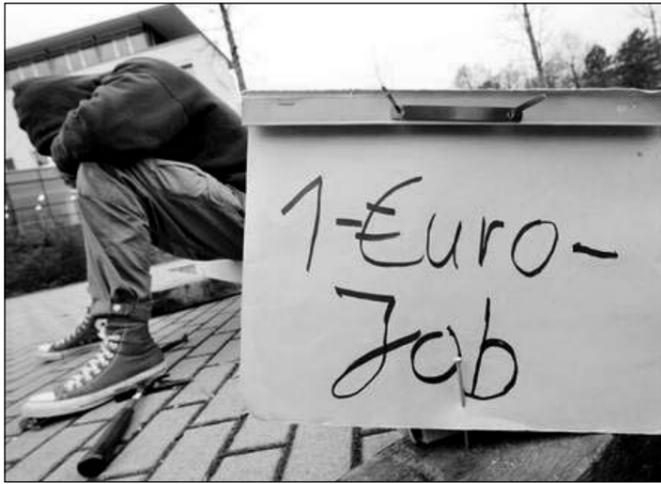 1-€uro-
Job